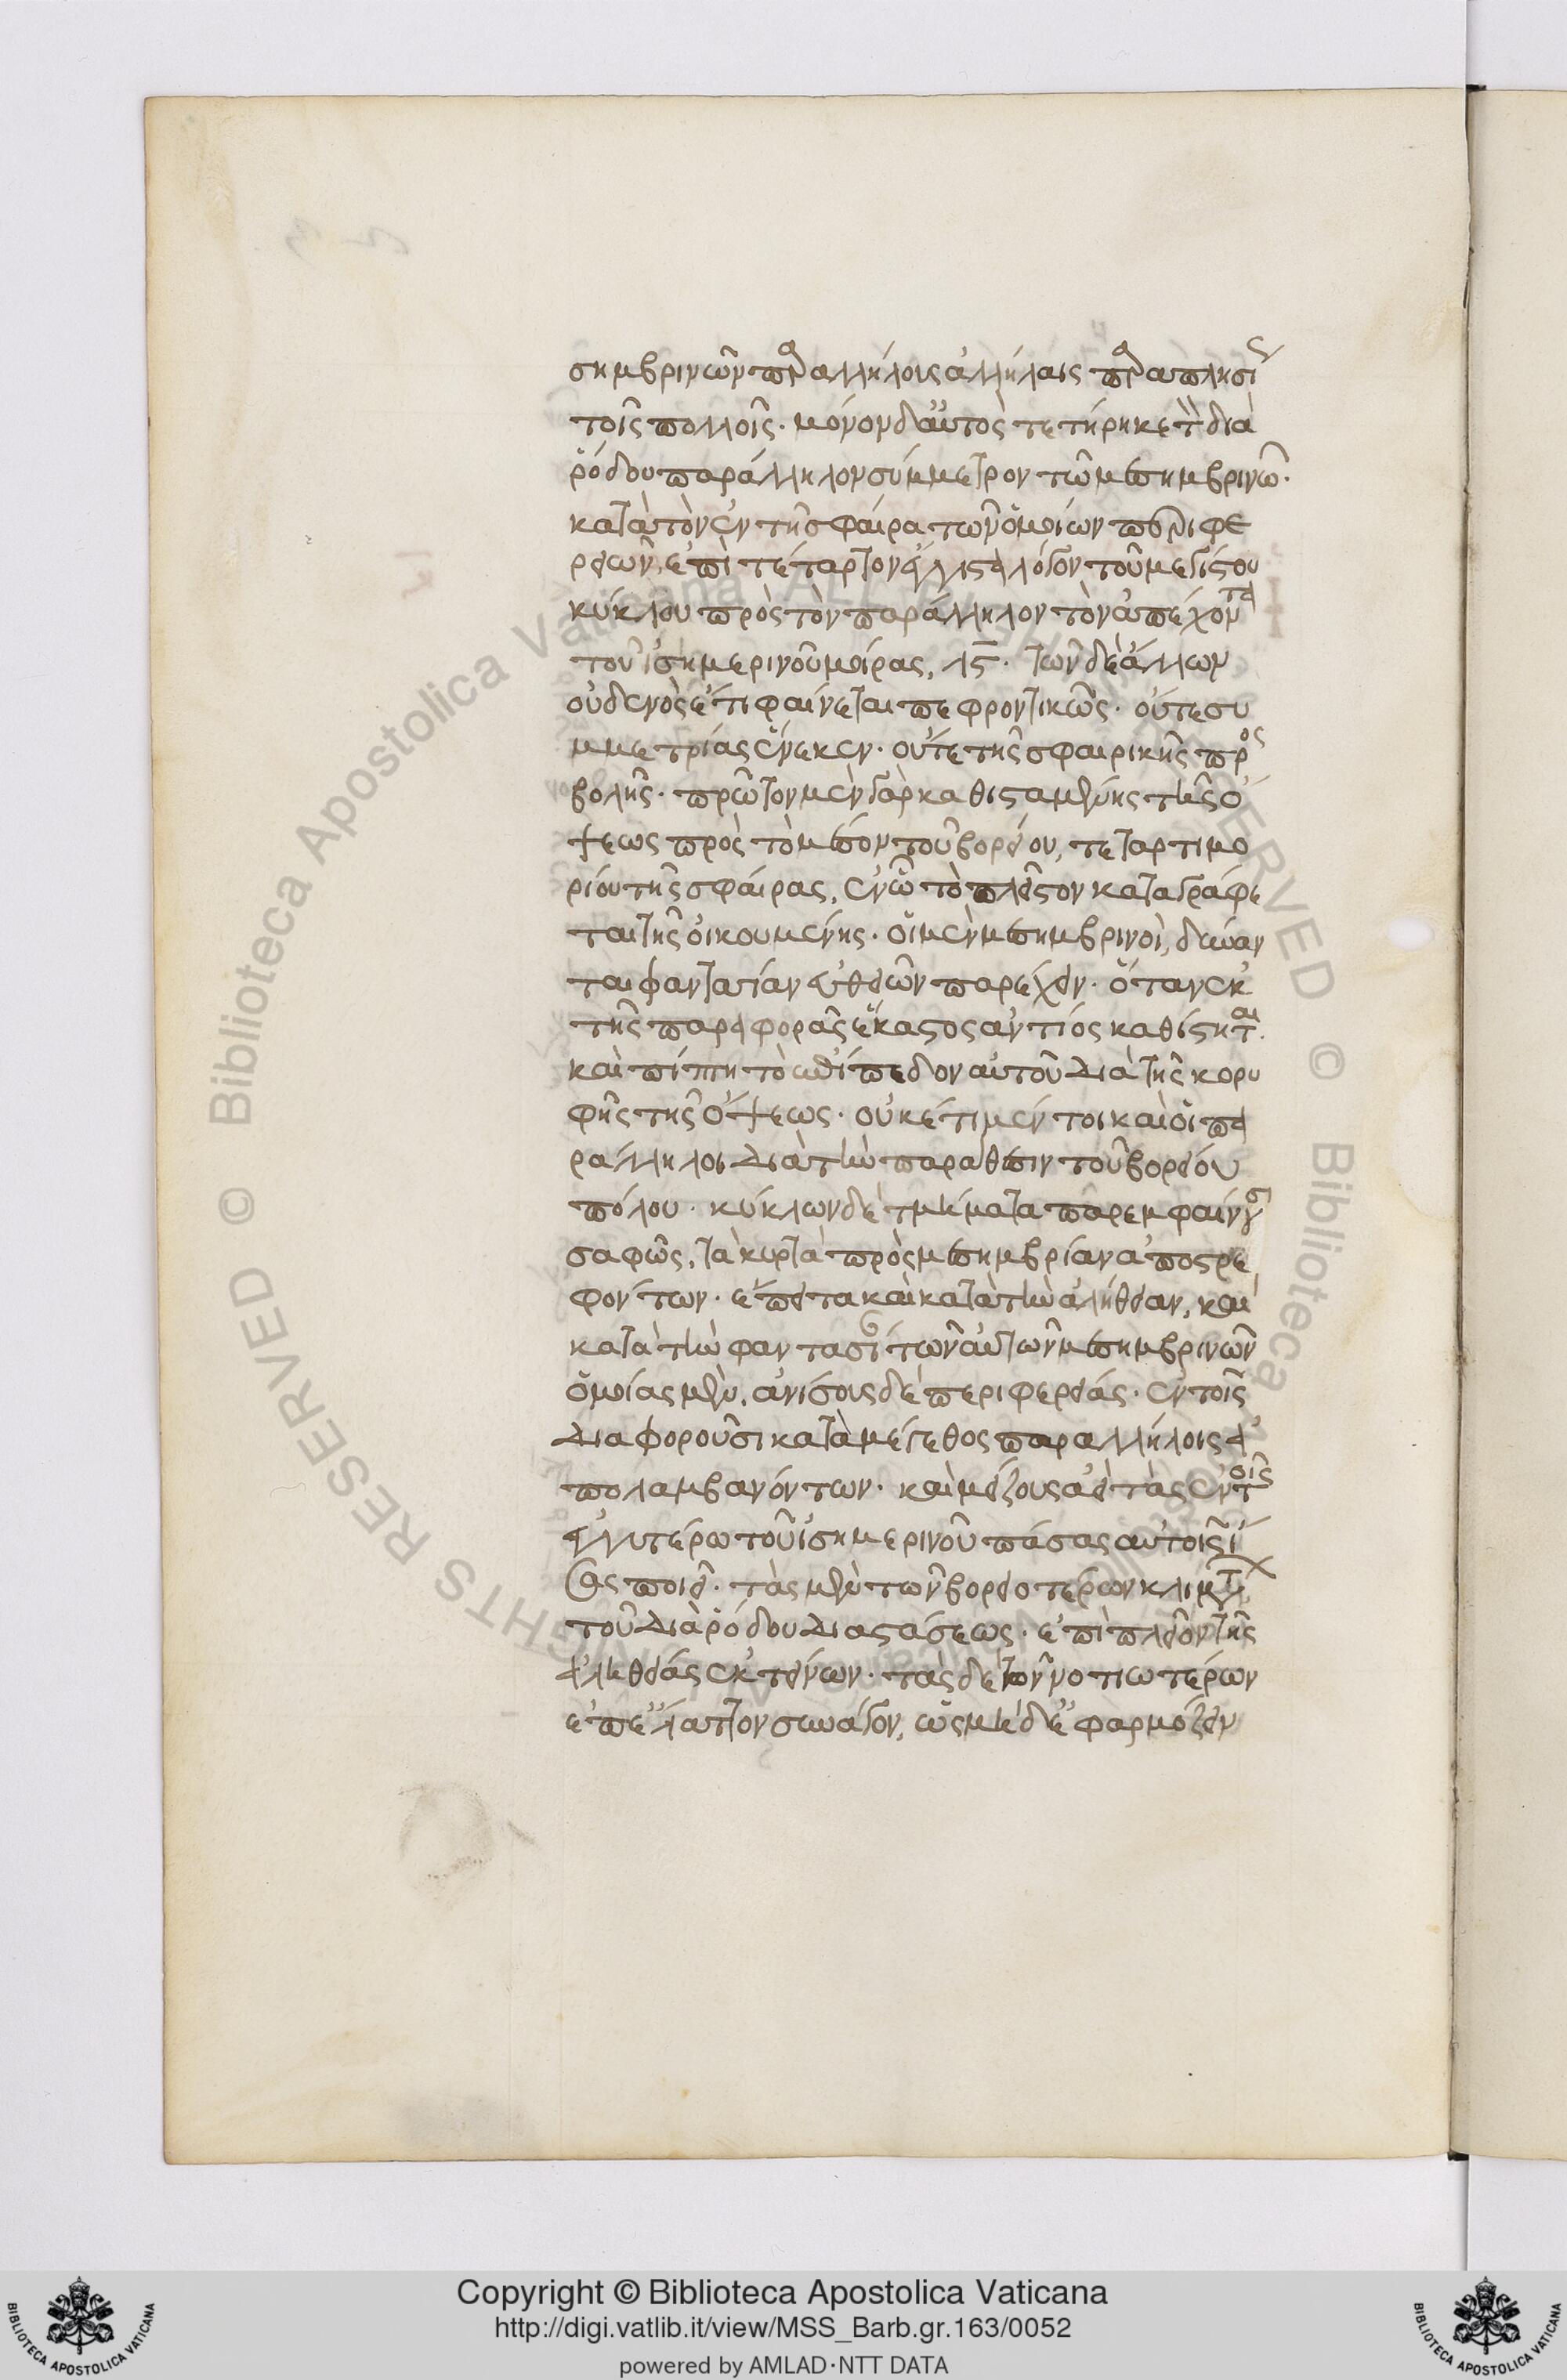 σημβρινῶν πρ̅α αλλήλοις ἀλλήλαις πρ̅α απλησί ς
τοῖς πολλοῖς. μόνον δ᾽αὐτὸς τετήρηκε τ̀ διὰ
ῥόδου παράλληλον σύμμετρον τῶ μεσημβρινῶ.
κατὰ τὸν ἐν τῆ σφαίρα τῶν ὁμοίων περιφε
ρειῶν, ἐπὶ τέταρτον ἔγγιστα λόγον τοῦ μεγίστου
κύκλου πρὸς τὸν παράλληλον τὸν ἀπέχοντα
τοῦ ἰσημερινοῦ μοίρας, λϛ̅. τῶν δὲ ἄλλων
οὐδενὸς ἔτι φαίνεται πεφροντικῶς. οὔτε συ
μμετρίας ἕνεκεν. οὔτε τῆς σφαιρικῆς προς
βολῆς. πρῶτον μὲν γὰρ καθισταμένης τῆς ὄ
ψεως πρὸς τὸ μέσον τοῦ βορείου, τεταρτιμο
ρίου τῆς σφαίρας, ἐν ὧ τὸ πλεῖστον καταγράφε
ται τῆς οἰκουμένης. οἱ μὲν μεσημβρινοὶ, δύναν
ται φαντασίαν εὐθειῶν παρέχειν. ὅταν ἐκ
τῆς παραφορᾶς ἕκαστος ἀντίος καθίστηται.
καὶ πίπτη τὸ ἐπίπεδον αὐτοῦ διὰ τῆς κορυ
φῆς τῆς ὄψεως. οὐκέτι μέν τοι καὶ οἱ πα
ράλληλοι διὰ τὴν παράθεσιν τοῦ βορείου
πόλου. κύκλων δὲ τμήματα παρεμφαίνου
σαφῶς, τὰ κυρτὰ πρὸς μεσημβρίαν ἀποστρε
φόντων. ἔπειτα καὶ κατὰ τὴν ἀλήθειαν, καὶ
κατὰ τὴν φαντασί τῶν αὐτῶν μεσημβρινῶν
ὁμοίας μὲν, ἀνίσους δὲ περιφερείάς. ἐν τοῖς
διαφοροῦσι κατὰ μέγεθος παραλλήλοις ἀ
πολαμβανόντων. καὶ μείζους ἀεὶ τὰς ἐν τοῖς
ἐγγυτέρω τοῦ ἰσημερινοῦ πάσας αὐτοῖς ἴ
σας ποιεῖ. τὰς μὲν τῶν βορειοτέρων κλιμάτ
τοῦ διὰ ῥόδου διαστάσεως. ἐπὶ πλεῖον τῆς
ἀληθείάς ἐκτείνων. τὰς δὲ τῶν νοτιωτέρων
ἐπ᾽ ἔλαττον συνάγον, ὡς μηδ᾽ ἐφαρμόζειν
Copyright © Biblioteca Apostolica Vaticana
http://digi.vatlib.it/view/MSS_Barb.gr.163/0052
powered by AMLAD·NTT DATA